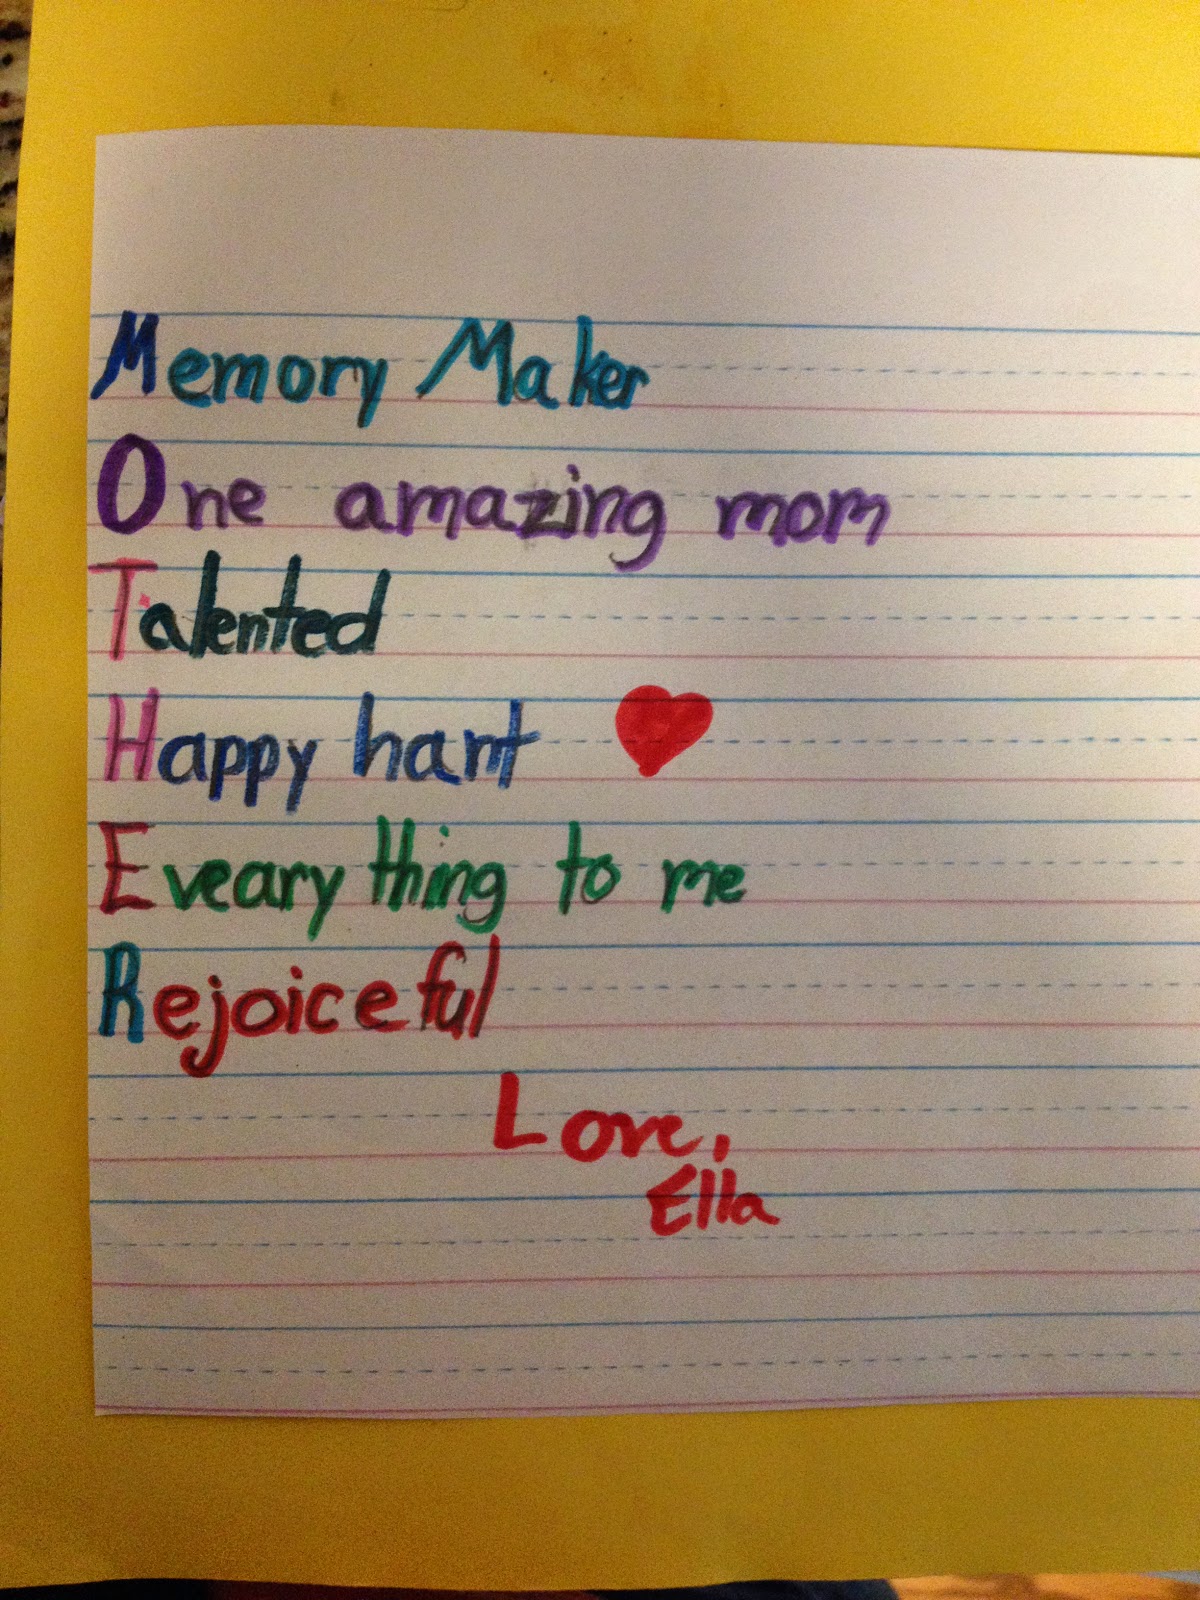 Memory Maker
One amazing mom
Talented
Happy hart
Eveary thing to me
Rejoiceful
Love,
Ella